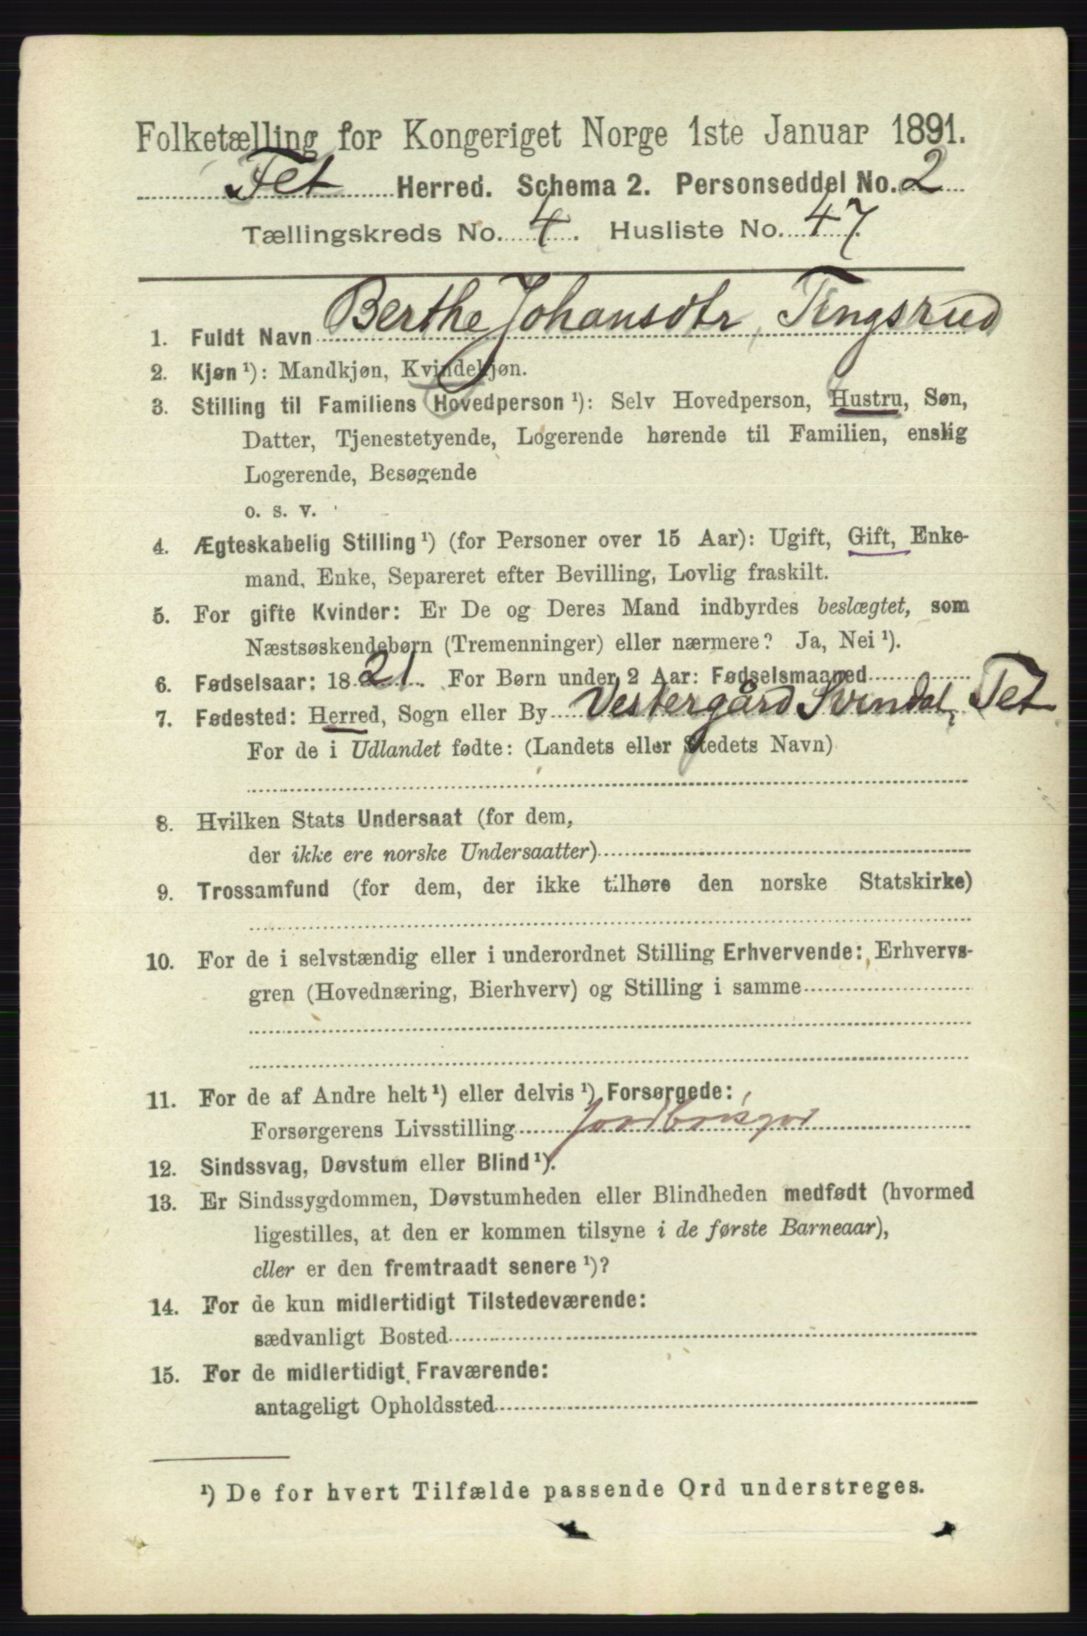 Folketælling for Kongeriget Norge 1ste Januar 1891.
Fet Herred. Schema 2. Personseddel No. 2
Tællingskreds No. 4. Husliste No. 47.
1. Fuldt Navn Berthe Johansdtr, Tingsrud
2. Kjøn ¹): Mandkjøn, Kvindekjøn.
3. Stilling til Familiens Hovedperson ¹): Selv Hovedperson, Hustru, Søn,
Datter, Tjenestetyende, Logerende hørende til Familien, enslig
Logerende, Besøgende
o. s. v.
4. Ægteskabelig Stilling ¹) (for Personer over 15 Aar): Ugift, Gift, Enke-
mand, Enke, Separeret efter Bevilling, Lovlig fraskilt.
5. For gifte Kvinder: Er De og Deres Mand indbyrdes beslægtet, som
Næstsøskendebørn (Tremenninger) eller nærmere? Ja, Nei ¹).
6. Fødselsaar: 1821. For Børn under 2 Aar: Fødselsmaaned
7. Fødested: Herred, Sogn eller By Vestergård Svindal, Fet
For de i Udlandet fødte: (Landets eller Stedets Navn)
8. Hvilken Stats Undersaat (for dem,
der ikke ere norske Undersaatter)
9. Trossamfund (for dem, der ikke tilhøre den norske Statskirke)
10. For de i selvstændig eller i underordnet Stilling Erhvervende: Erhvervs-
gren (Hovednæring, Bierhverv) og Stilling i samme
11. For de af Andre helt ¹) eller delvis ¹) Forsørgede:
Forsørgerens Livsstilling
12. Sindssvag, Døvstum eller Blind ¹).
13. Er Sindssygdommen, Døvstumheden eller Blindheden medfødt (hvormed
ligestilles, at den er kommen tilsyne i de første Barneaar),
eller er den fremtraadt senere ¹)?
14. For de kun midlertidigt Tilstedeværende:
sædvanligt Bosted
15. For de midlertidigt Fraværende:
antageligt Opholdssted
¹) De for hvert Tilfælde passende Ord understreges.